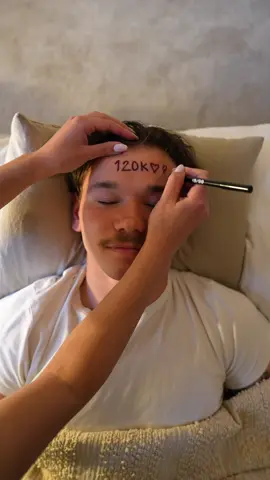 120K♡♡